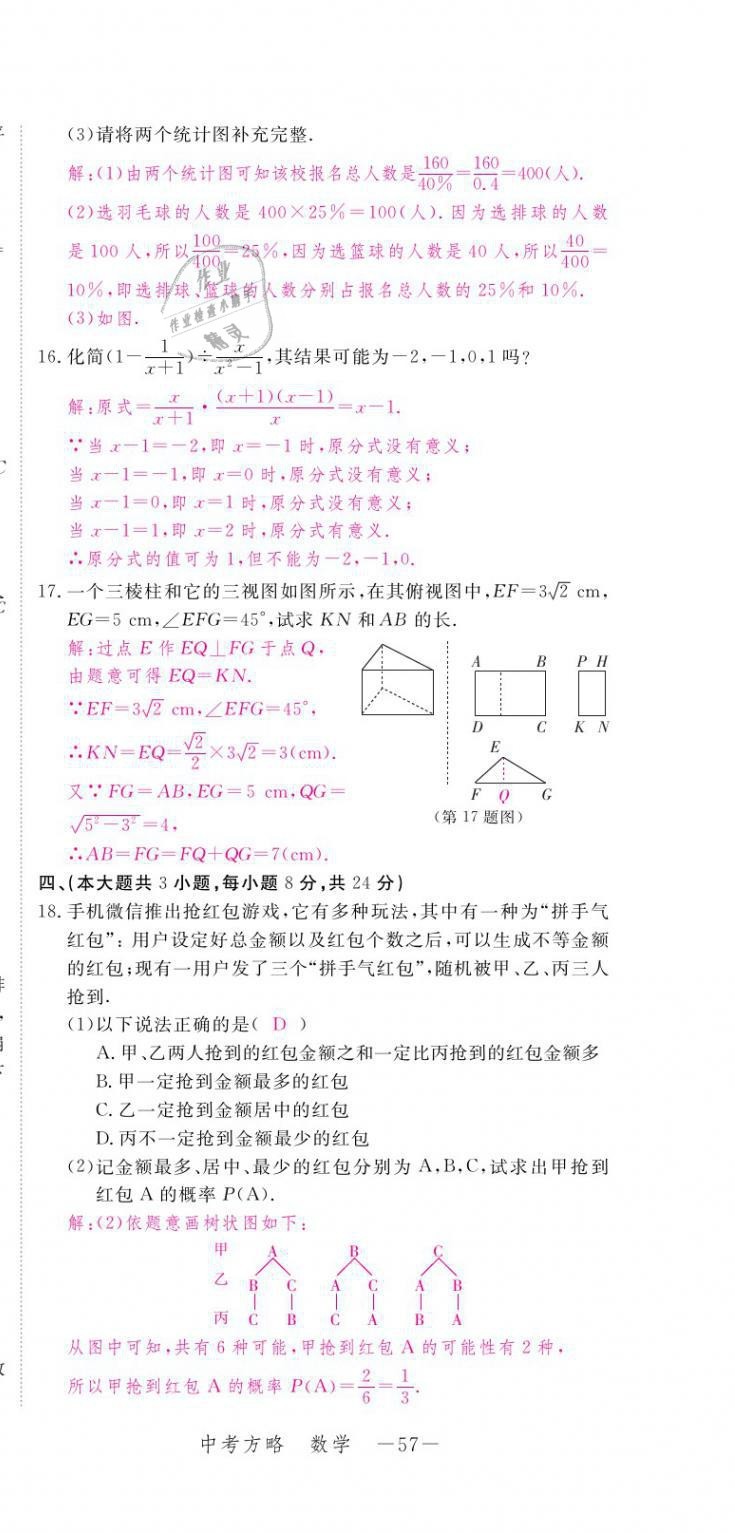 (3)请将两个统计图补充完整.
解:(1)由两个统计图可知该校报名总人数是160/40%=160/0.4=400(人).
(2)选羽毛球的人数是 400×25%=100(人).因为选排球的人数
是 100 人,所以100/400=25%,因为选篮球的人数是 40 人,所以40/400=
10%,即选排球、篮球的人数分别占报名总人数的 25%和 10%.
(3)如图.
作业
作业检查小助手
精灵
16.化简(1-1/(x+1))÷x/(x²-1),其结果可能为-2,-1,0,1 吗?
解:原式=x/(x+1)·(x+1)(x-1)/x=x-1.
∵当 x-1=-2,即 x=-1 时,原分式没有意义;
当 x-1=-1,即 x=0 时,原分式没有意义;
当 x-1=0,即 x=1 时,原分式没有意义;
当 x-1=1,即 x=2 时,原分式有意义.
∴原分式的值可为 1,但不能为-2,-1,0.
17.一个三棱柱和它的三视图如图所示,在其俯视图中,EF=3√2 cm,
EG=5 cm,∠EFG=45°,试求 KN 和 AB 的长.
解:过点 E 作 EQ⊥FG 于点 Q,
由题意可得 EQ=KN.
∵EF=3√2 cm,∠EFG=45°,
∴KN=EQ=√2/2×3√2=3(cm).
又∵FG=AB,EG=5 cm,QG=
√(5²-3²)=4,
∴AB=FG=FQ+QG=7(cm).
A B P H
D C K N
E
F Q G
(第 17 题图)
四、(本大题共 3 小题,每小题 8 分,共 24 分)
18.手机微信推出抢红包游戏,它有多种玩法,其中有一种为“拼手气
红包”:用户设定好总金额以及红包个数之后,可以生成不等金额
的红包;现有一用户发了三个“拼手气红包”,随机被甲、乙、丙三人
抢到.
(1)以下说法正确的是( D )
A.甲、乙两人抢到的红包金额之和一定比丙抢到的红包金额多
B.甲一定抢到金额最多的红包
C.乙一定抢到金额居中的红包
D.丙不一定抢到金额最少的红包
(2)记金额最多、居中、最少的红包分别为 A,B,C,试求出甲抢到
红包 A 的概率 P(A).
解:(2)依题意画树状图如下:
甲 A B C
乙 B C A C A B
丙 C B C A B A
从图中可知,共有 6 种可能,甲抢到红包 A 的可能性有 2 种,
所以甲抢到红包 A 的概率 P(A)=2/6=1/3.
中考方略 数学 —57—